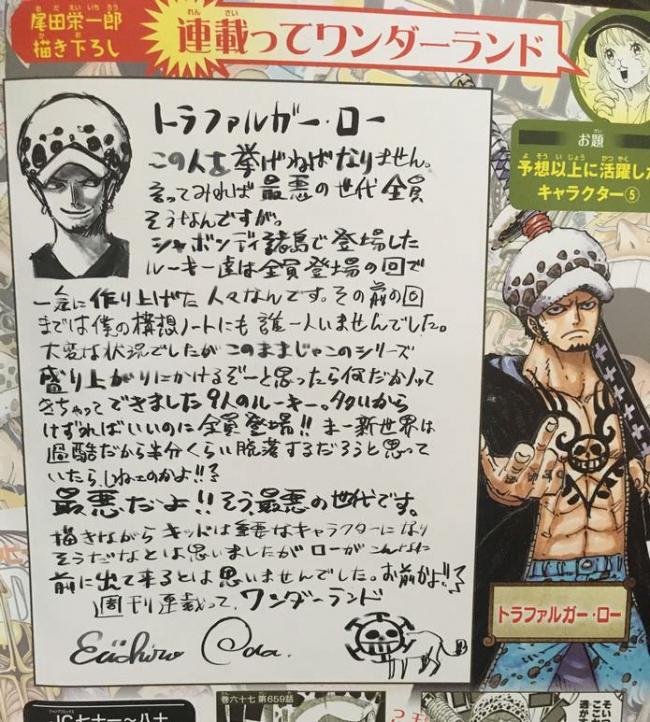 尾田栄一郎
描き下ろし
連載ってワンダーランド
お題
予想以上に活躍した
キャラクター⑤
トラファルガー・ロー
この人を挙げねばなりません。
言ってみれば最悪の世代全員
そうなんですが。
シャボンディ諸島で登場した
ルーキー達は全員登場の回で
一気に作り上げた人々なんです。その前の回
までは僕の構想ノートにも誰一人いませんでした。
大変な状況でしたがこのままじゃこのシリーズ
盛り上がりにかけるぞーと思ったら何だかノッて
きちゃってできました9人のルーキー。多いから
けずればいいのに全員登場!! まー新世界は
過酷だから半分くらい脱落するだろうと思って
いたら、しねェのかよ!!
最悪だよ!!そう最悪の世代です。
描きながらキッドは重要なキャラクターになり
そうだなとは思いましたがローがこんなに
前に出て来るとは思いませんでした。お前かよ!!
週刊連載って、ワンダーランド
Eiichiro Oda.
トラファルガー・ロー
JC七十一～八十
巻六十七 第659話